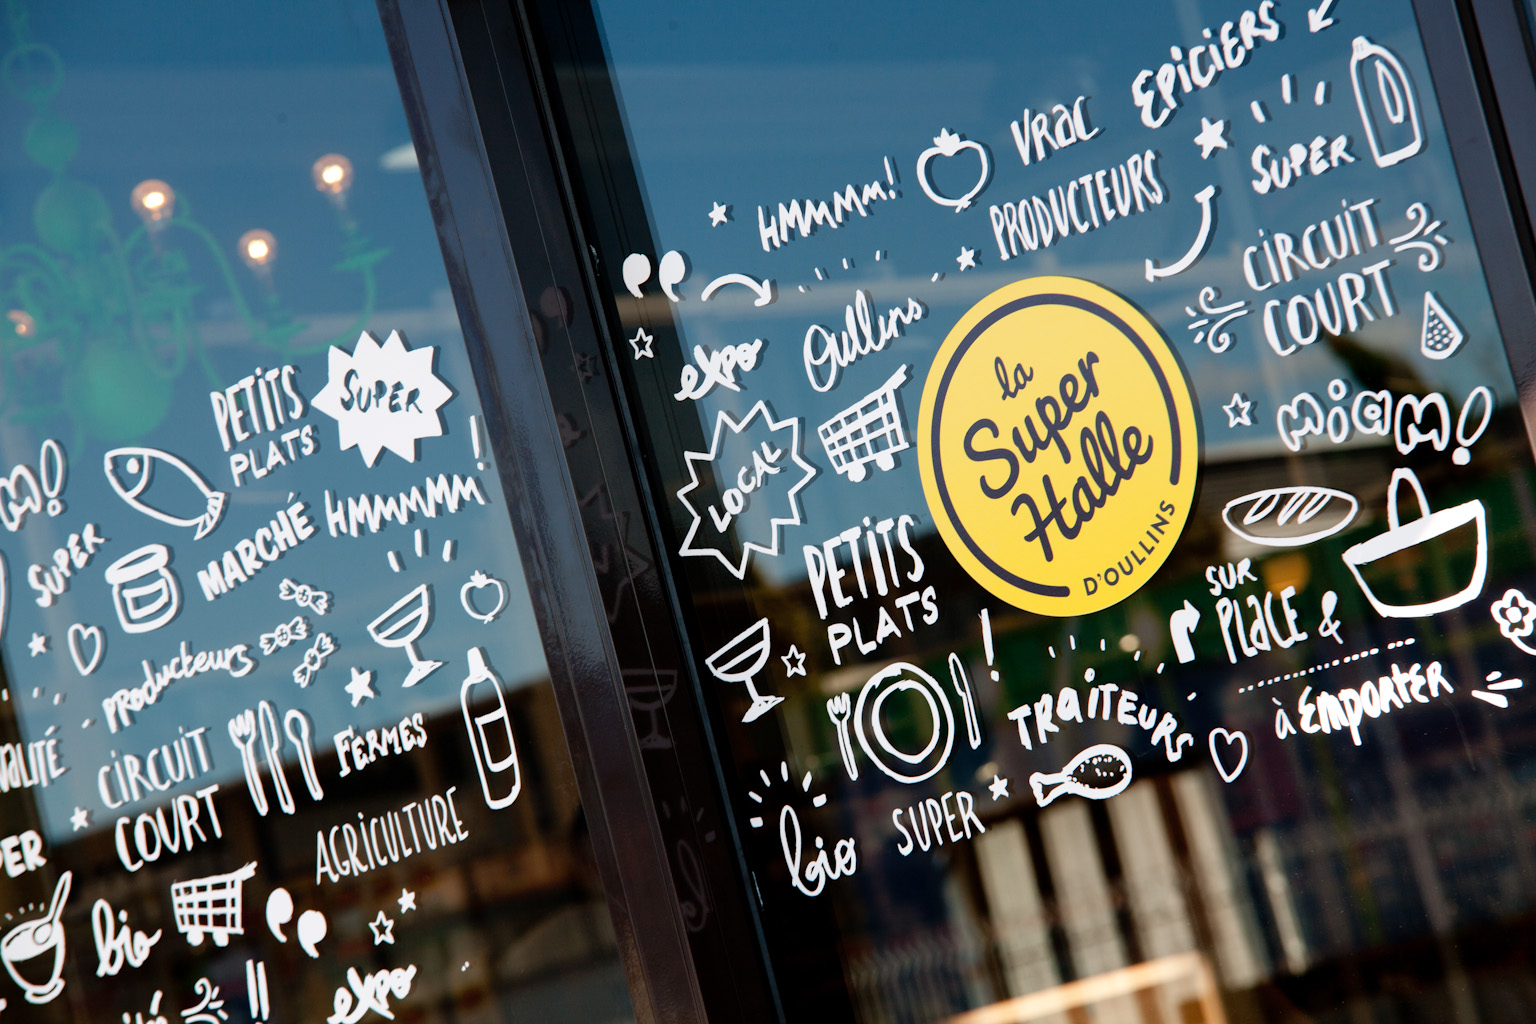 PETITS
PLATS
SUPER
SUPER
MARCHÉ
HMMMMM!
producteurs
CIRCUIT
COURT
FERMES
AGRICULTURE
bio
expo
EPICIERS
VRAC
HMMMMM!
PRODUCTEURS
SUPER
CIRCUIT
COURT
Oullins
expo
LOCAL
la
Super
Halle
D'OULLINS
MIAM!
PETITS
PLATS
SUR
PLACE &
à EMPORTER
TRAITEURS
bio
SUPER